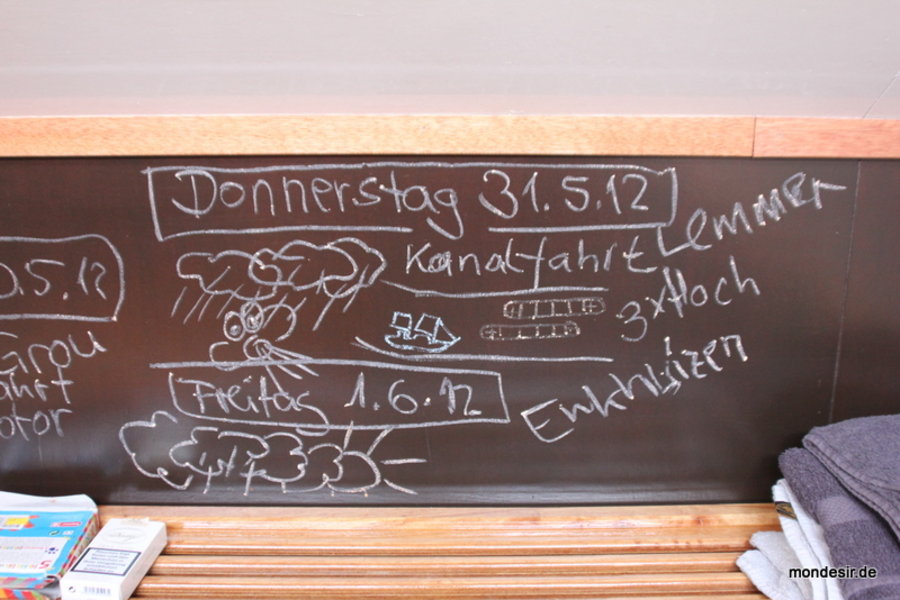 Donnerstag 31.5.12
Kanalfahrt Lemmer
3xHoch
Enkhuizen
Freitag 1.6.12
0.5.12
Grou
ahrt
otor
mondesir.de